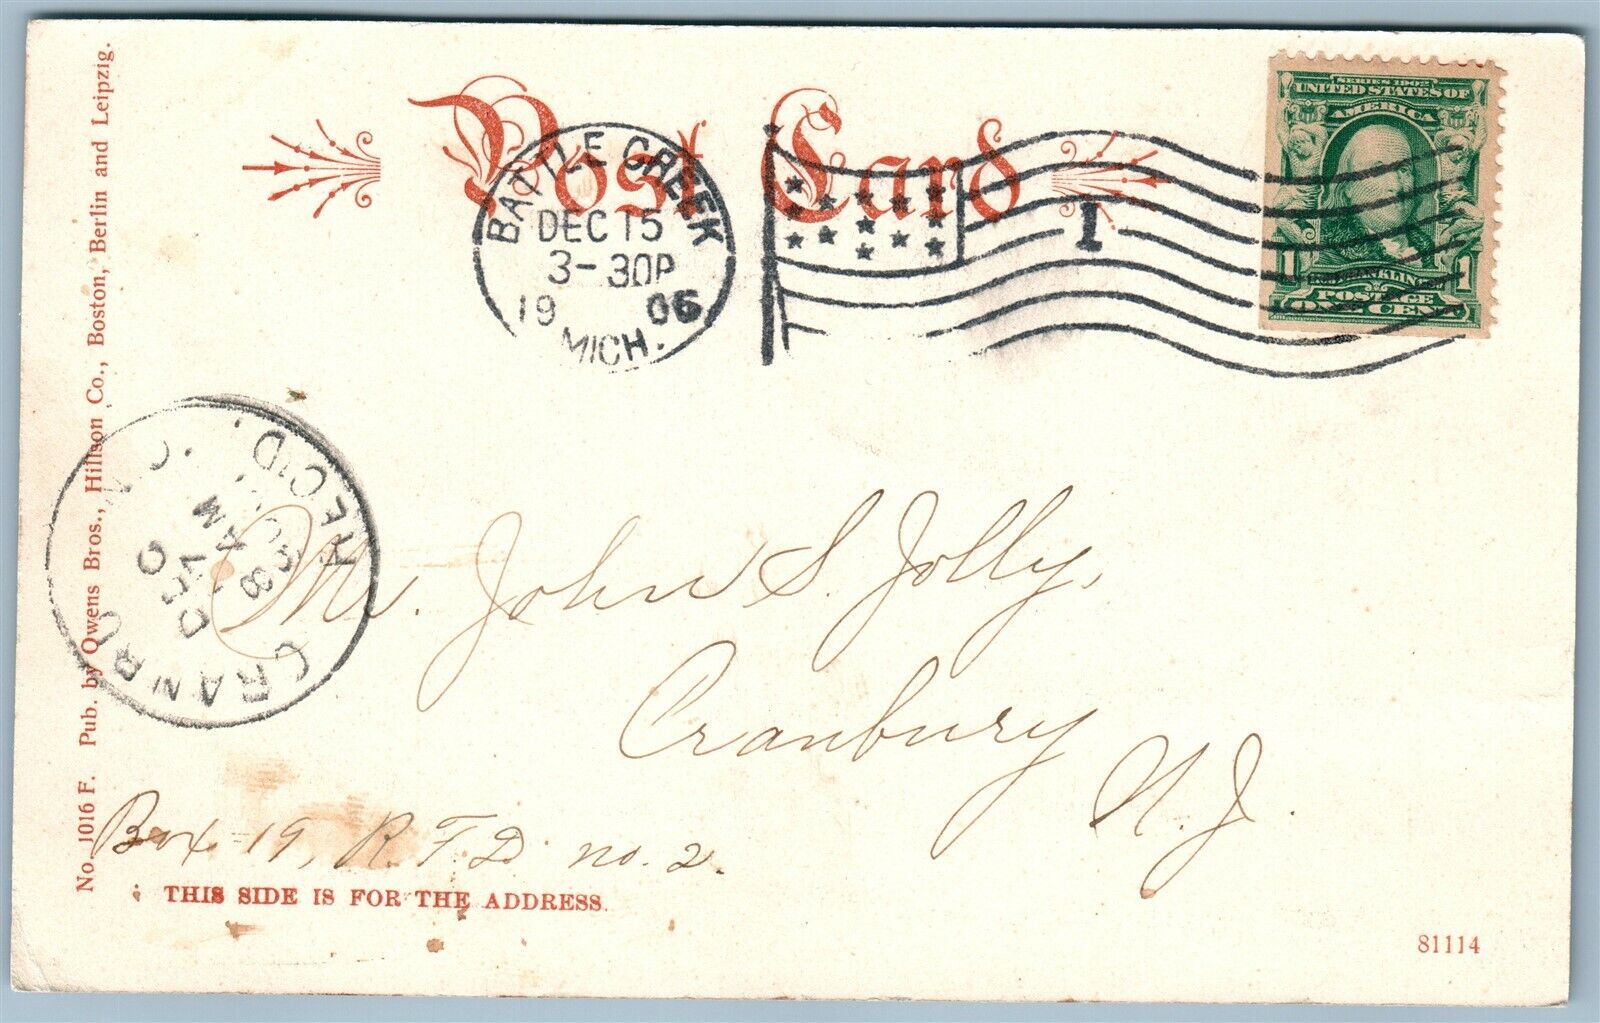 Post Card
BATTLE CREEK
DEC 15
3-30P
1906
MICH.
1
SERIES 1902
UNITED STATES OF
AMERICA
FRANKLIN
1 POSTAGE 1
ONE CENT
No. 1016 F. Pub. by Owens Bros., Hillson Co., Boston, Berlin and Leipzig.
REC'D.
8 AM
DEC
Mr. John S. Jolly,
Cranbury
N. J.
Box-19, R. F. D. no. 2.
THIS SIDE IS FOR THE ADDRESS.
81114